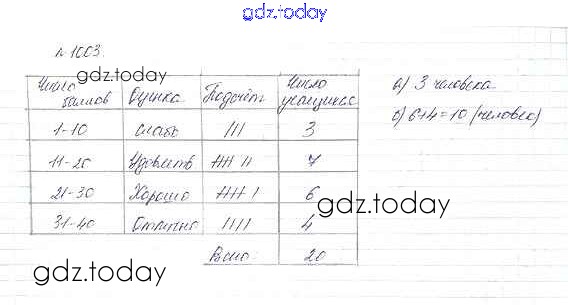 gdz.today
№ 1003
gdz.today
Число баллов Оценка Подсчёт Число учащихся
1-10 слабо III 3
11-20 Удовлетв HH II 7
21-30 Хорошо HH I 6
31-40 Отлично IIII 4
Всего: 20
а) 3 человека
б) 6+4=10 (человек)
gdz.today
gdz.today